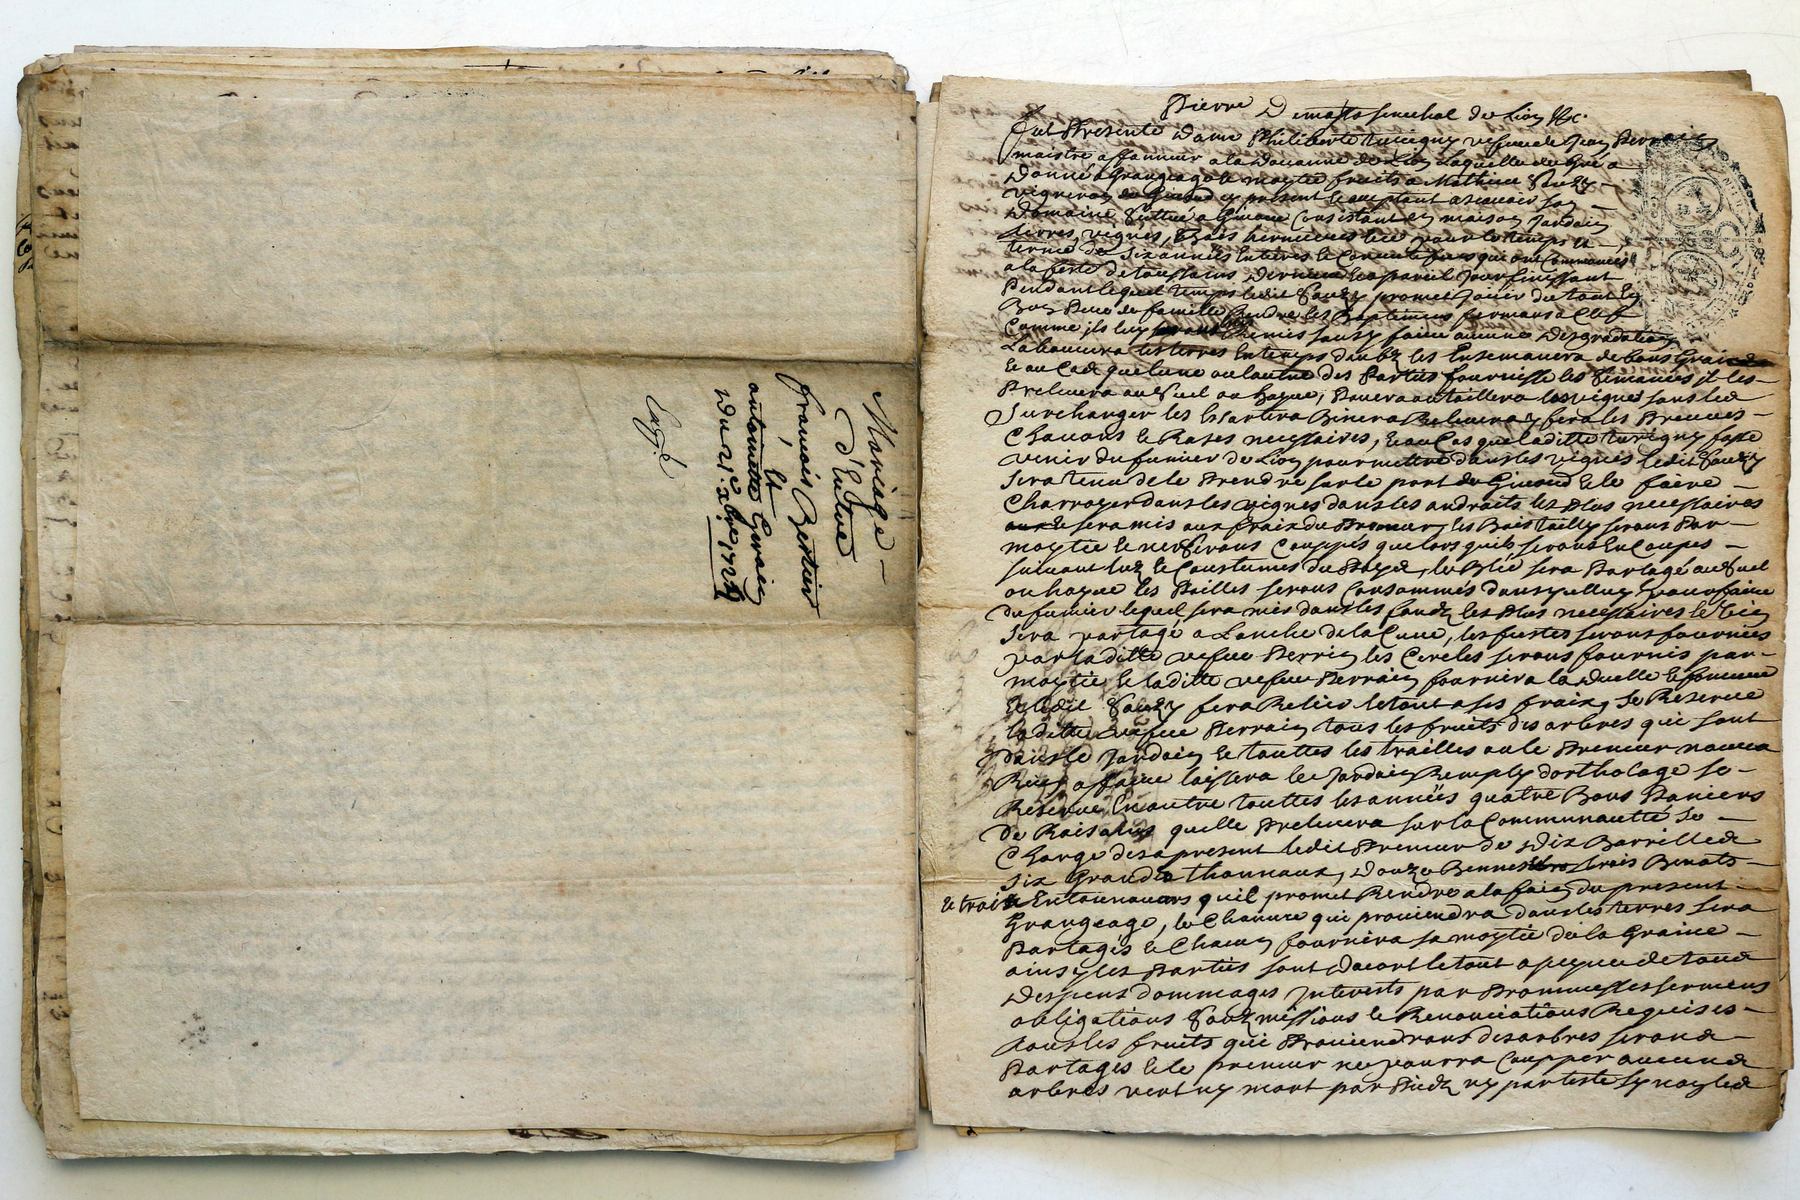 Mariage
d'Entre
françois Bertier
Et
antoinette
Du 21.e xbre
Pierre De masso senechal de Lion &c.
fut Presente Dame Philiberte vefue de Jean Perrain
maistre a la Douanne de Lion laquelle de gré a
Donné a Grangeage a moytié fruits a Mathieu
Vigneron de present et aceptant ascavoir son
Domaine Scittué a consistant en maison Jardain
terres, vignes, Bois pour le temps et
terme de Six années entieres et Consecutifues qui ont Commancés
a la feste de toussains Derniere a pareil Jour finissant
Pendant lequel temps ledit promet Jouir du tout En
Bon Pere de famille Rendre les fermans a Clef
Comme ils luy Remis sans y faire aucune Desgradation
Labourera les terres En temps les Ensemancera de bons Grains
Et au Cas que lune ou lautre des Parties fournisse les Semances il les
Prelevera au Suel ou taillera les vignes sans les
Surcharger les Binera Relevera y fera les Preuues
Et Rases necessaires, Et au Cas que laditte fasse
venir du fumier de Lion pour mettre dans les vignes ledit
Sera tenu de le Prendre sur le port de Et le faire
Charroyer dans les vignes dans les androits les Plus necessaires
Et sera mis aux fraix du Preneur, les Bois taillis seront Par
moytié Et ne Seront Couppés que lors quils seront En Coupes
suiuant luz Et Coustumes du Pays, le Blé sera Partagé au Suel
les Pailles seront Consommés pour faire
du fumier lequel sera mis dans les fondz les Plus necessaires le vin
Sera partagé a Lanche de la Cuue, les futtes seront fournies
par laditte vefue Perrin les Cercles seront fournis par
moytié Et laditte vefue Perrain fournira la
Et ledit fera Relier le tout a ses fraix, Se Reserue
laditte vefue Perrain tous les fruits des arbres qui sont
dans le Jardain Et touttes les trailles ou le Preneur naura
Rien a faire laissera le Jardain Remply dorthollage se
Reserue En outre touttes les années quatre Bons Paniers
De Raisains quelle Prelevera sur la Communautté se
Charge des a present ledit Preneur de Dix Barrilles
six Grands thonnaux, Douze Bennes trois Benots
et trois Entonnauoirs quil promet Rendre a la fain du present
Grangeage, le Chanure qui prouiendra dans les terres sera
Partagés Et Chacun fournira sa moytié de la Graine
ainsy les Parties sont Dacort le tout a peyne de tous
Despens dommages Interests par Promesses sermens
obligations Soubmissions Et Renonciations Requises
tous les fruits qui Prouiendront des arbres seront
Partagés Et le preneur ne pourra Coupper aucuns
arbres vert ny mort par Piedz ny par teste